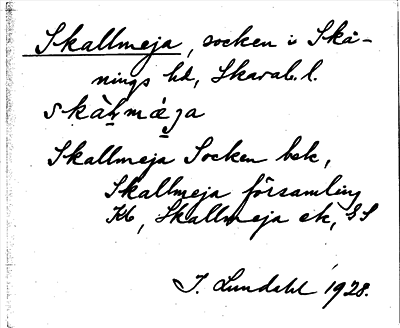 Skallmeja, socken i Skå-
nings hd, Skarab. l.
Skallmeja Socken bek,
Skallmeja församling
Kb, Skallmeja ek, GS
I. Lundahl 1928.